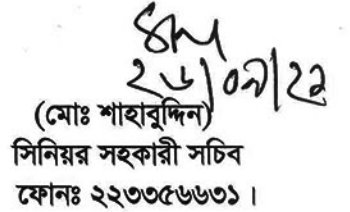 ২৬/০৭/২২
(মোঃ শাহাবুদ্দিন)
সিনিয়র সহকারী সচিব
ফোনঃ ২২৩৩৫৬৬৩১ ।